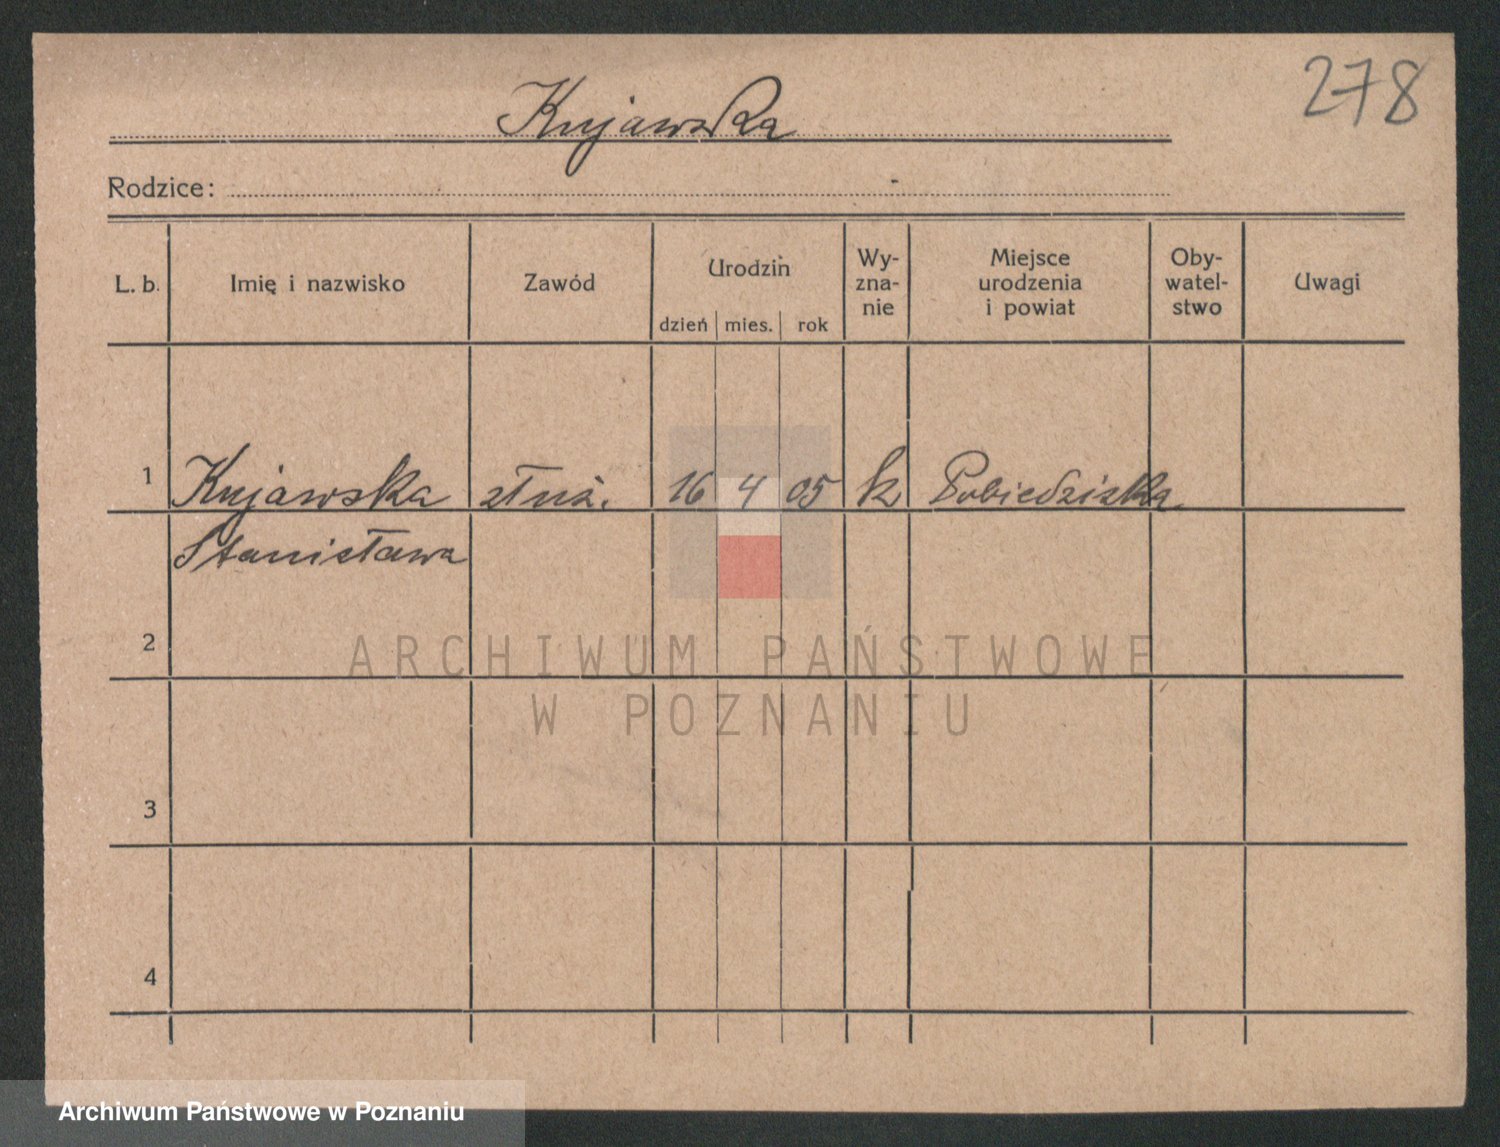 278
Kujawska
Rodzice:
L. b. Imię i nazwisko Zawód Urodzin dzień mies. rok Wy-zna-nie Miejsce urodzenia i powiat Oby-watel-stwo Uwagi
1 Kujawska służ. 16 4 05 k Pobiedziska
Stanisława
2
ARCHIWUM PAŃSTWOWE
W POZNANIU
3
4
Archiwum Państwowe w Poznaniu